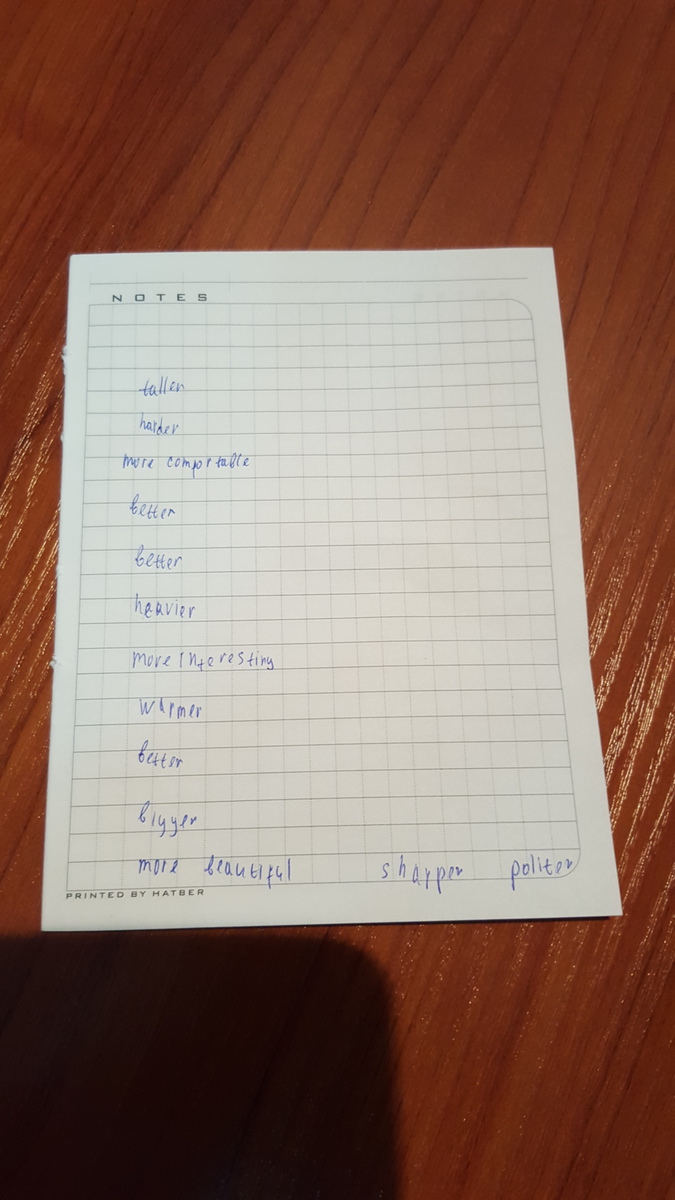 NOTES
taller
harder
more comportable
better
better
heavier
more interesting
warmer
better
bigger
more beautiful sharper politer
PRINTED BY HATBER